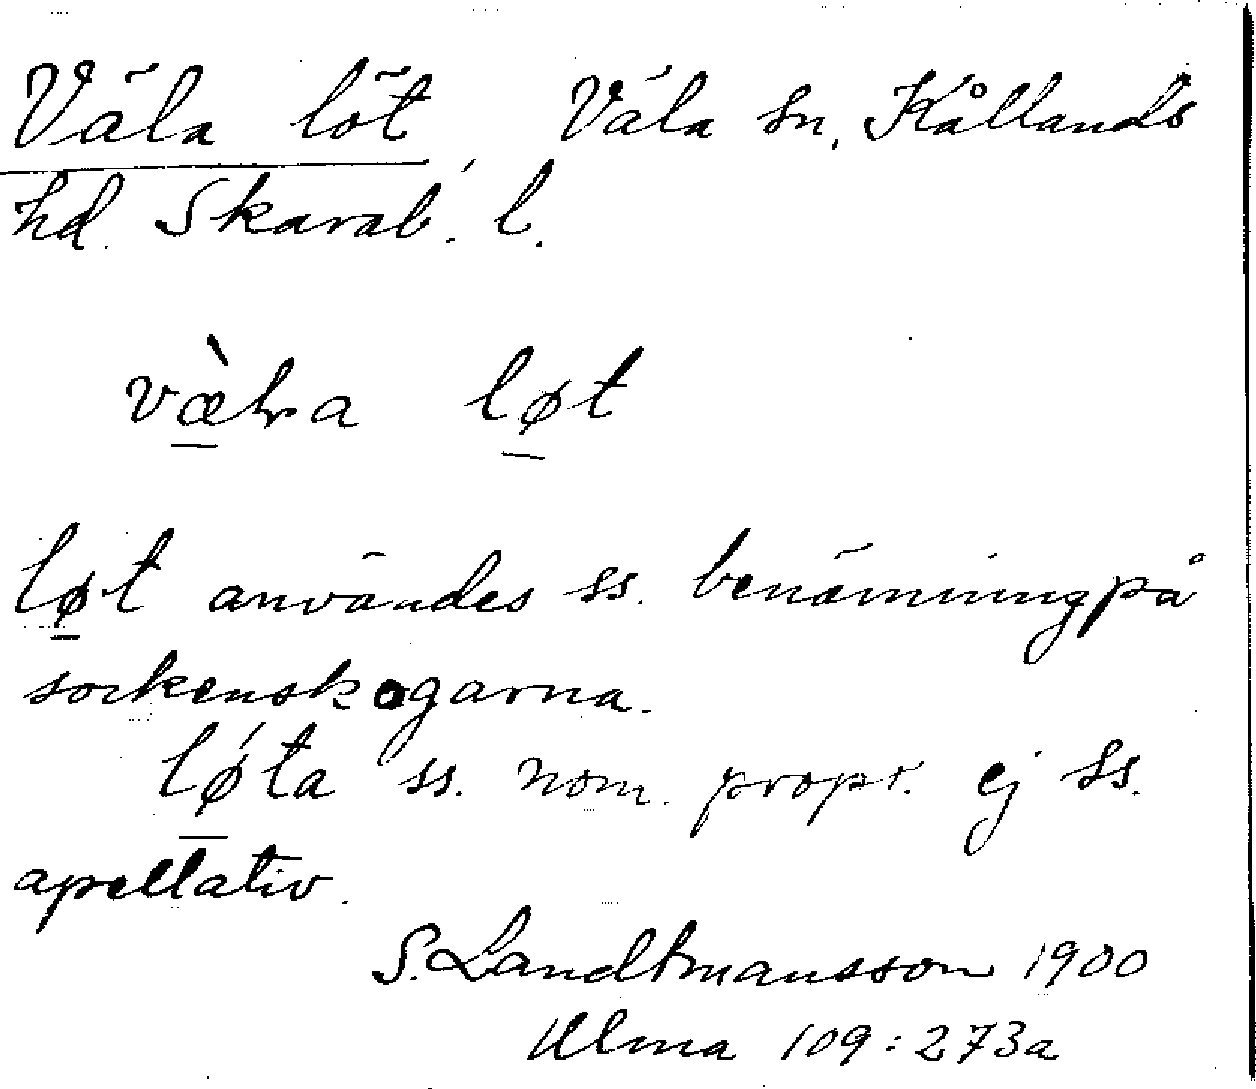 Väla löt, Väla sn, Kållands
hd. Skarab. l.
væ̀lra løt
løt användes ss. benämning på
sockenskogarna.
lǿta ss. nom. propr. ej ss.
apellativ.
S. Landtmansson 1900
Ulma 109:273a